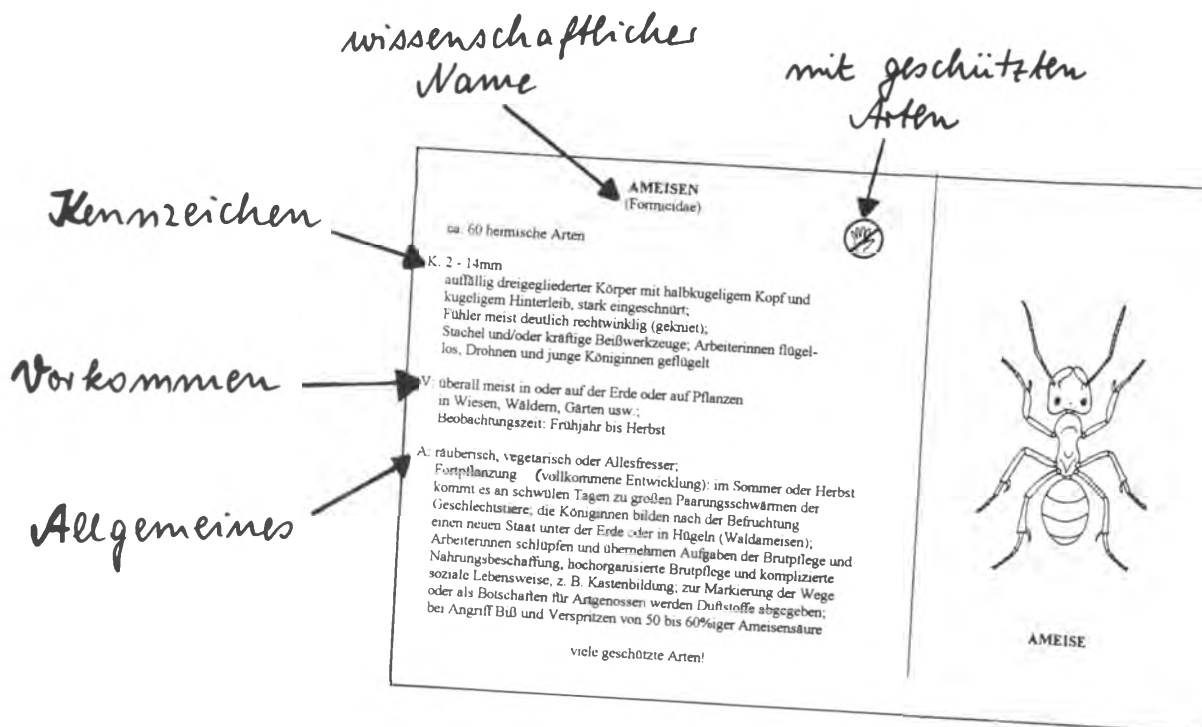 wissenschaftlicher
Name
mit geschützten
Arten
Kennzeichen
Vorkommen
Allgemeines
AMEISEN
(Formicidae)
ca. 60 heimische Arten
K. 2 - 14mm
auffällig dreigegliederter Körper mit halbkugeligem Kopf und
kugeligem Hinterleib, stark eingeschnürt;
Fühler meist deutlich rechtwinklig (gekniet);
Stachel und/oder kräftige Beißwerkzeuge; Arbeiterinnen flügel-
los, Drohnen und junge Königinnen geflügelt
V: überall meist in oder auf der Erde oder auf Pflanzen
in Wiesen, Wäldern, Gärten usw.;
Beobachtungszeit: Frühjahr bis Herbst
A: räuberisch, vegetarisch oder Allesfresser;
Fortpflanzung (vollkommene Entwicklung): im Sommer oder Herbst
kommt es an schwülen Tagen zu großen Paarungsschwärmen der
Geschlechtstiere; die Königinnen bilden nach der Befruchtung
einen neuen Staat unter der Erde oder in Hügeln (Waldameisen);
Arbeiterinnen schlüpfen und übernehmen Aufgaben der Brutpflege und
Nahrungsbeschaffung, hochorganisierte Brutpflege und komplizierte
soziale Lebensweise, z. B. Kastenbildung; zur Markierung der Wege
oder als Botschaften für Artgenossen werden Duftstoffe abgegeben;
bei Angriff Biß und Verspritzen von 50 bis 60%iger Ameisensäure
viele geschützte Arten!
AMEISE